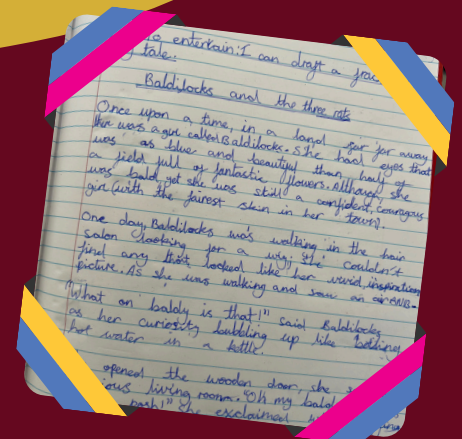 to entertain: I can draft a
tale.
Baldilocks and the three rats
Once upon a time, in a land far far away
ther was a girl called Baldilocks. She had eyes that
was as blue and beautiful than half of
a field full of fantastic flowers. Although she
was bald yet she was still a confident, courageous
girl (with the fairest skin in her town).
One day, Baldilocks was walking in the hair
salon looking for a wig; she couldn't
find any that looked like her vivid inspiration
picture. As she was walking and saw an airBNB.
"What on baldy is that!" said Baldilocks
as her curiosity bubbling up like boiling
hot water in a kettle.
opened the wooden door, she
living room. "Oh my bald
she exclaimed